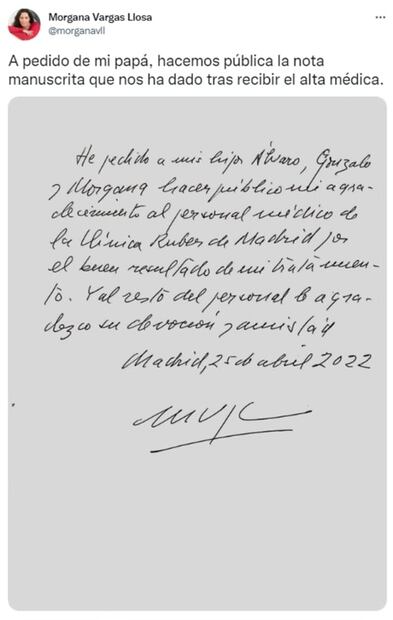 Morgana Vargas Llosa
@morganavll
A pedido de mi papá, hacemos pública la nota
manuscrita que nos ha dado tras recibir el alta médica.
He pedido a mis hijos Álvaro, Gonzalo
y Morgana hacer público mi agra-
decimiento al personal médico de
la Clínica Ruber de Madrid por
el buen resultado de mi tratamien-
to. Y al resto del personal le agra-
dezco su devoción y amistad
Madrid, 25 de abril 2022
MVLL